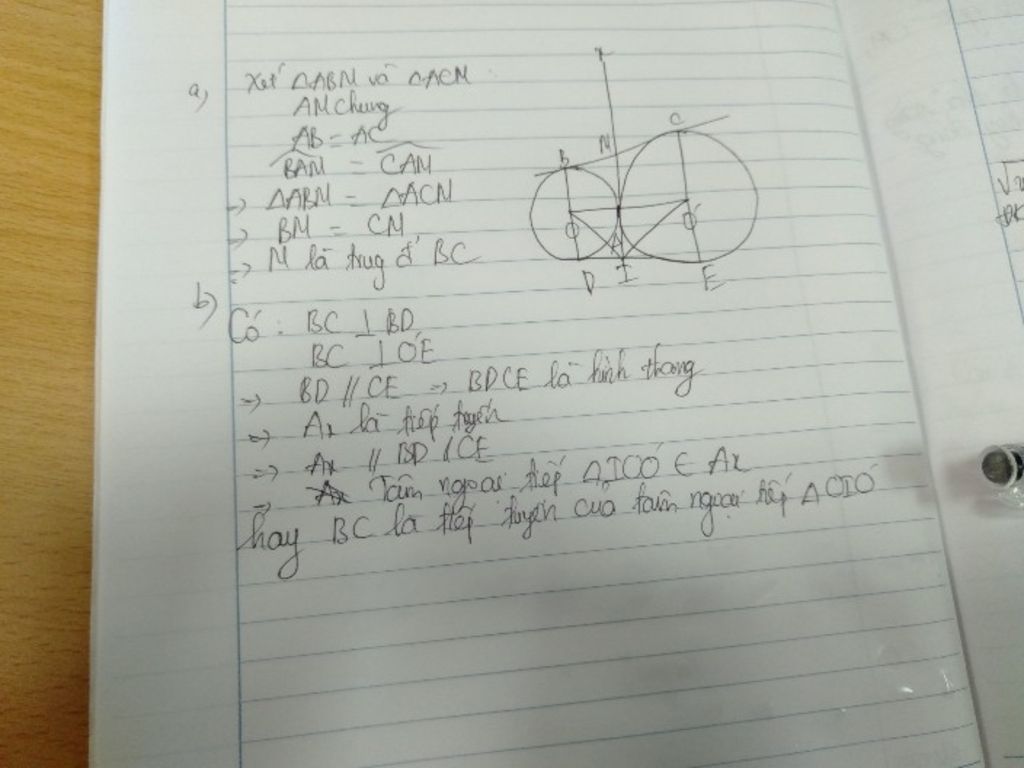 a) Xét ΔABM và ΔACM
AM chung
AB = AC
BAM = CAM
=> ΔABM = ΔACM
=> BM = CM
=> M là trug đ' BC
x
B
M
C
O
A
O'
D
I
E
b)
Có : BC ⊥ BD
BC ⊥ O'E
=> BD // CE => BDCE là hình thang
=> Ax là tiếp tuyến
=> Ax // BD // CE
=> Tâm ngoại tiếp ΔIOO' ∈ Ax
hay BC là tiếp tuyến của tâm ngoại tiếp ΔOIO'